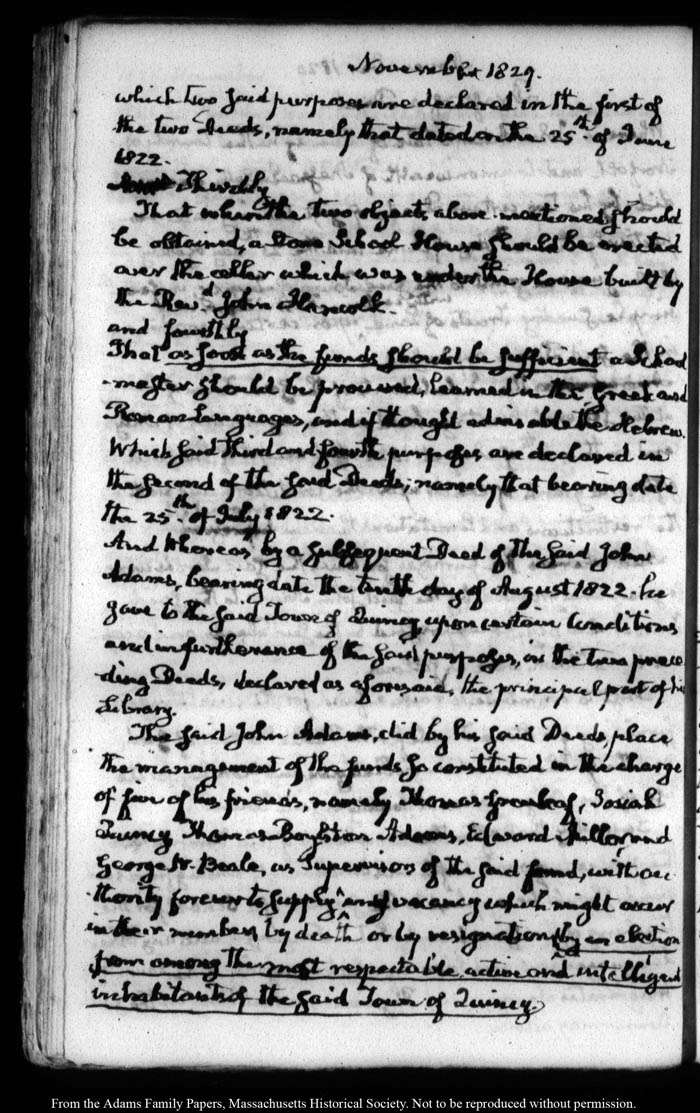 November 1829.
which two said purposes are declared in the first of
the two Deeds, namely that dated on the 25th. of June
1822.
Thirdly
That when the two objects above mentioned should
be obtained, a Stone School House should be erected
over the cellar which was under the House built by
the Revd. John Hancock.
and fourthly
That as soon as the funds should be sufficient a School
-master should be procured, learned in the Greek and
Roman languages, and if thought advisable the Hebrew.
Which said third and fourth purposes are declared in
the second of the said Deeds; namely that bearing date
the 25th. of July 1822.
And Whereas by a subsequent Deed of the said John
Adams, bearing date the tenth day of August 1822. he
gave to the said Town of Quincy, upon certain Conditions
and in furtherance of the said purposes, in the two prece
ding Deeds, declared as aforesaid, the principal part of his
Library.
The said John Adams, did by his said Deeds place
the management of the funds so constituted in the charge
of five of his friends, namely Thomas Greenleaf, Josiah
Quincy, Thomas Boylston Adams, Edward Miller and
George W. Beale, as Supervisors of the said fund, with au
thority forever to supply any vacancy which might occur
in their number, by death or by resignation, by an election
from among the most respectable, active and intelligent
inhabitants of the said Town of Quincy
From the Adams Family Papers, Massachusetts Historical Society. Not to be reproduced without permission.